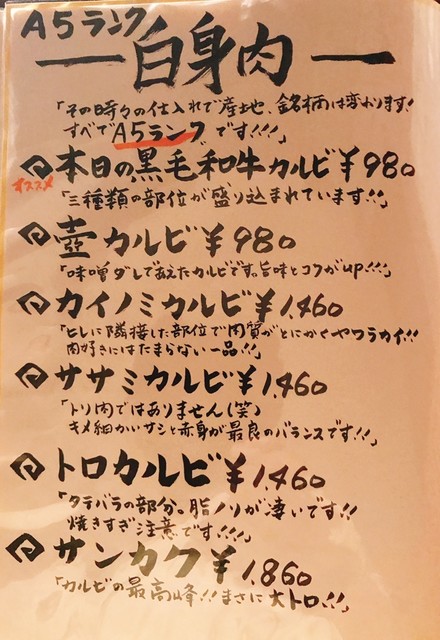 A5ランク
白身肉
「その時々の仕入れで産地や、銘柄は変わります!
すべてA5ランクです!!!」
本日の黒毛和牛カルビ ¥980
オススメ
「三種類の部位が盛り込まれています!!」
壺カルビ ¥980
「味噌ダレであえたカルビです。旨味とコクがup!!!」
カイノミカルビ ¥1,460
「ヒレに隣接した部位で肉質がとにかくヤワラカイ!!
肉好きにはたまらない一品!!」
ササミカルビ ¥1,460
「トリ肉ではありません(笑)
キメ細かいサシと赤身が最良のバランスです!!」
トロカルビ ¥1,460
「タテバラの部分。脂ノリが凄いです!!
焼きすぎ注意です!!!」
サンカク ¥1,860
「カルビの最高峰!!まさに大トロ!!」